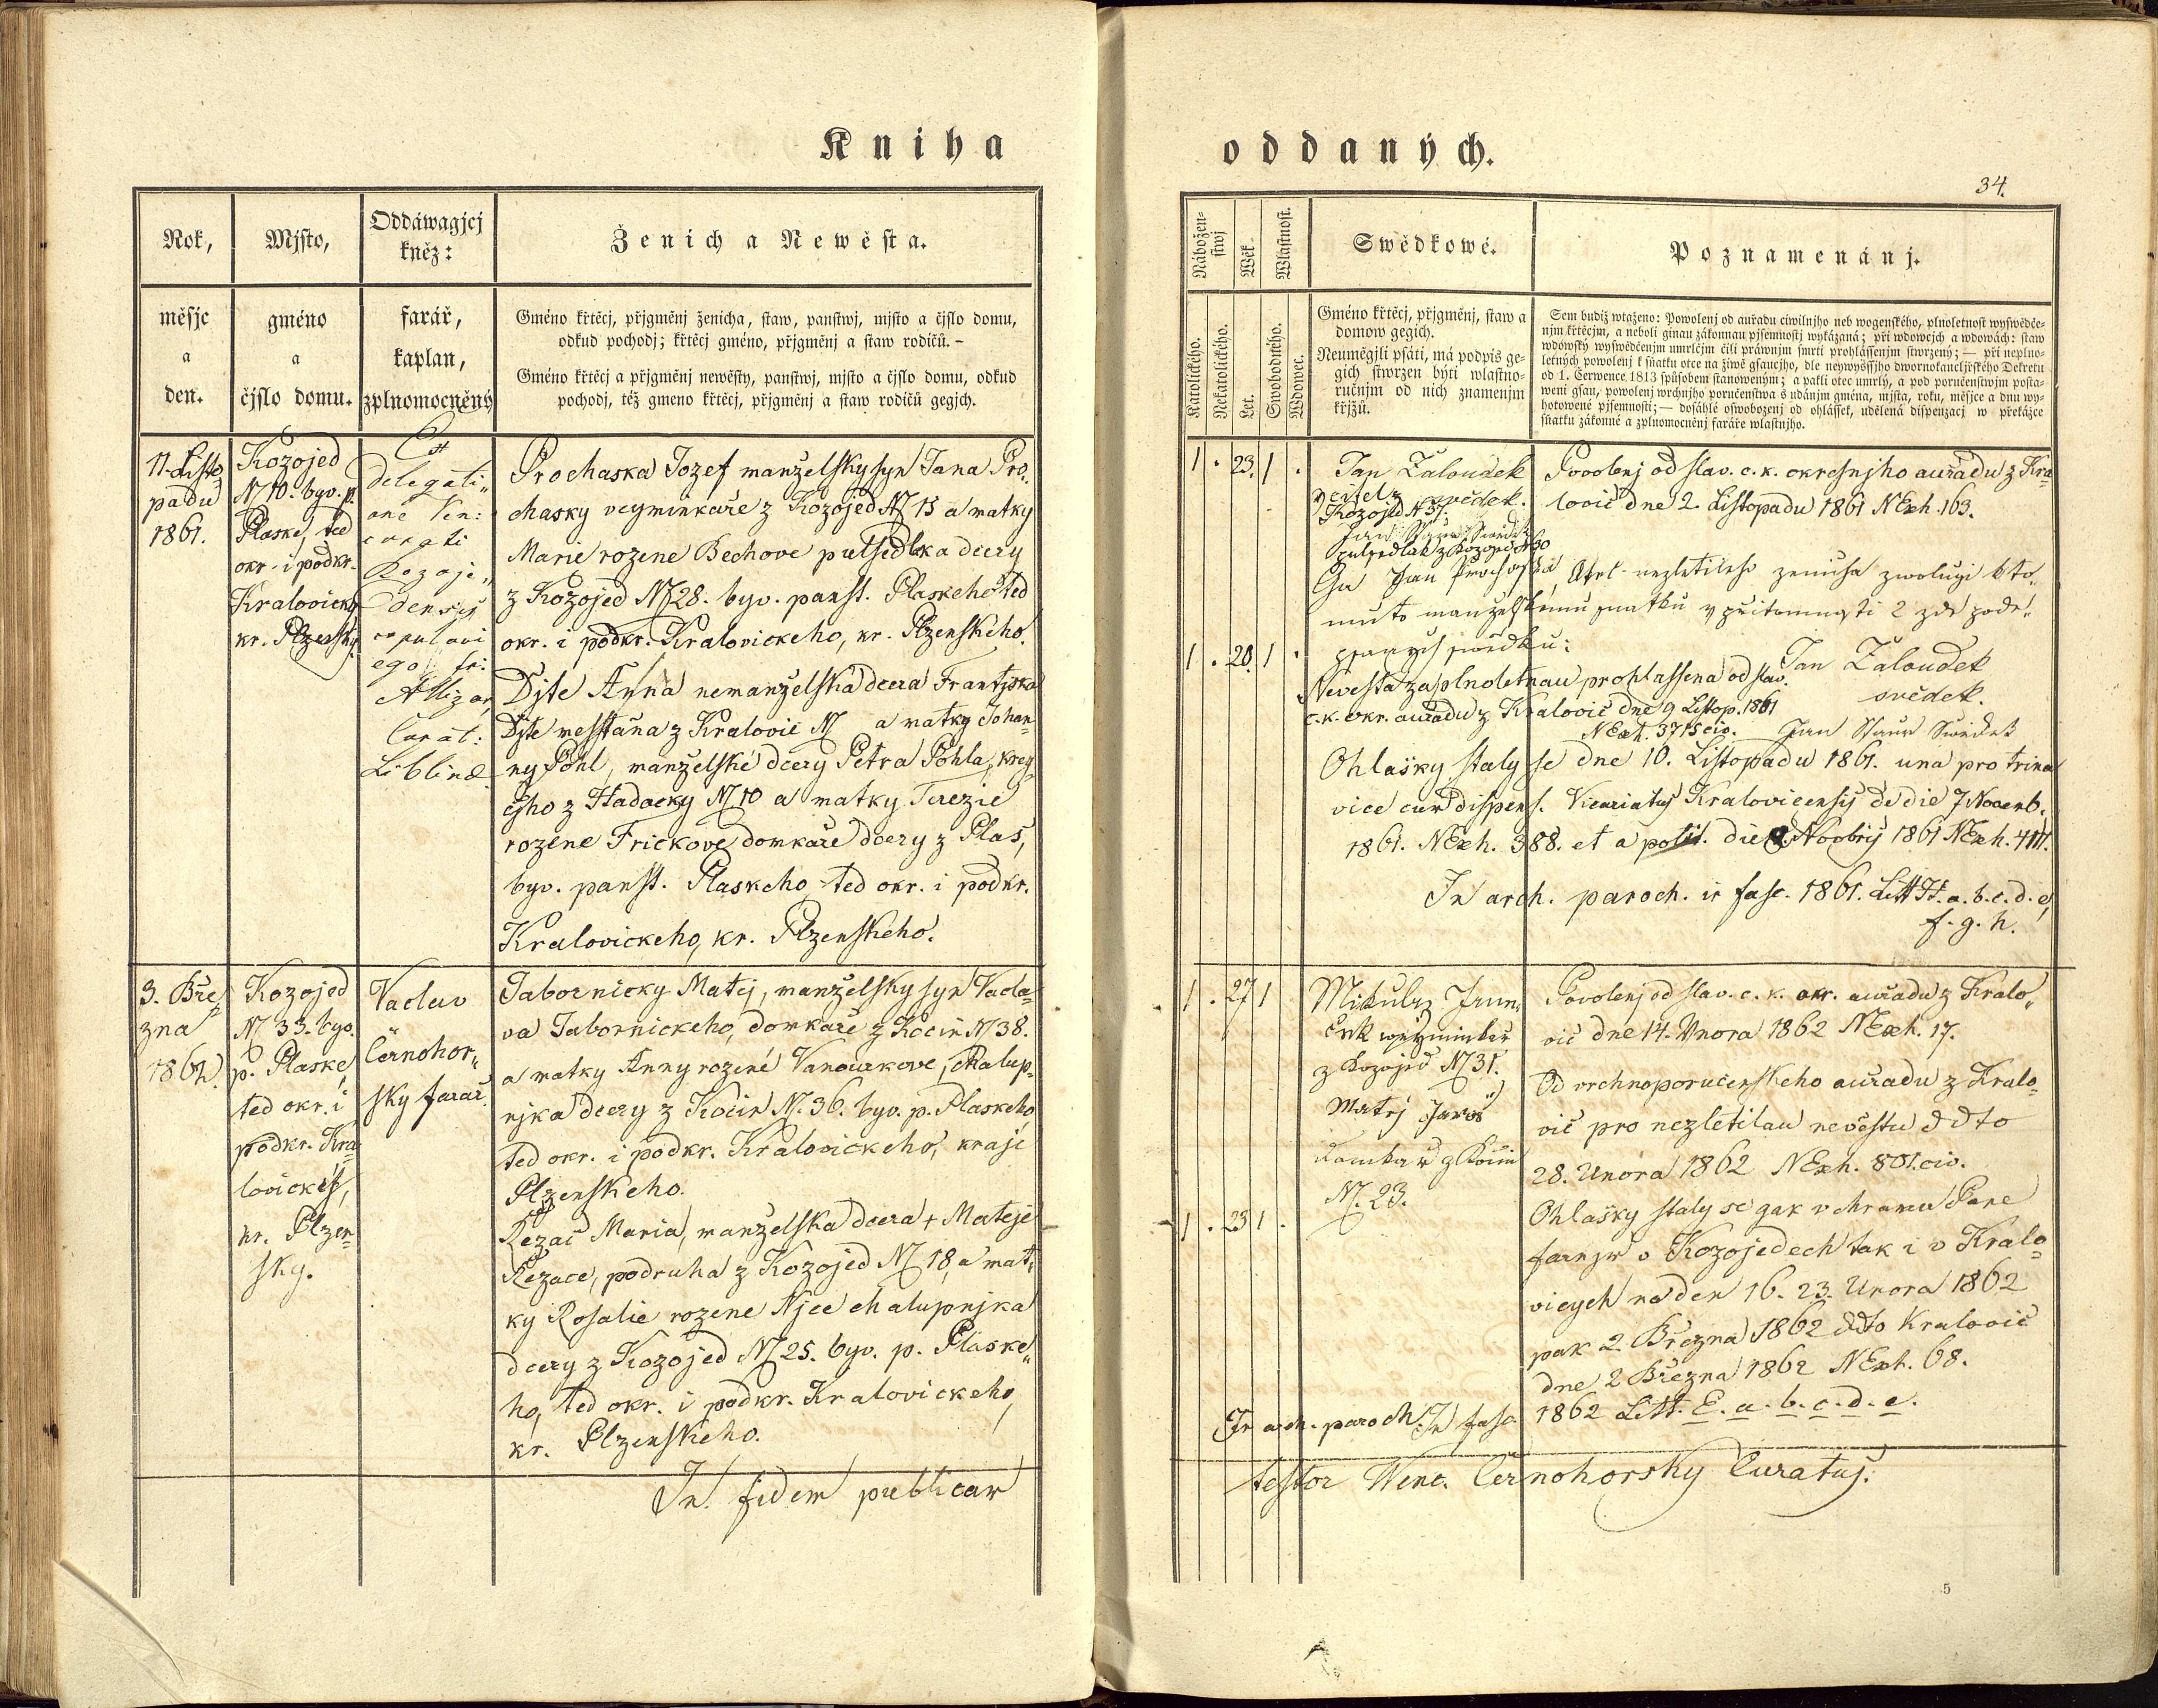 Kniha
Rok,
měsjc
a
den.
Mjsto,
gméno
a
čjslo domu.
Oddáwagjcj
kněz:
farář,
kaplan,
zplnomocněný
Ženich a Newěsta.
Gméno křtěcj, přjgměnj ženicha, staw, panstwj, mjsto a čjslo domu,
odkud pochodj; křtěcj gméno, přjgměnj a staw rodičů. –
Gméno křtěcj a přjgměnj newěsty, panstwj, mjsto a čjslo domu, odkud
pochodj, též gmeno křtěcj, přjgměnj a staw rodičů gegjch.
11. Listo
padu
1861.
Kozojed
N 10. byv. p.
Plaske, ted
okr. i podkr.
Kralovicky
kr. Plzensky
Ex
delegati„
one Ven:
curati
Kozoje„
densis
copulavi
ego fr:
Curat:
Liblin
Prochaska Jozef manželsky syn Jana Pro„
chasky vegminkaře z Kozojed N 15 a matky
Marie rozene Bechove pulsedlka dcery
z Kozojed N 28. byv. panst. Plaskeho ted
okr. i podkr. Kralovickeho, kr. Plzenskeho.
Djte Anna nemanželska dcera Frantjska
Djte messtana z Kralovic N a matky Johan-
ny Pohl, manželské dcery Petra Pohla, kreg
cjho z Hadacky N 10 a matky Terezie
rozene Frickove domkaře dcery z Plas,
byv. panst. Plaskeho ted okr. i podkr.
Kralovickeho, kr. Plzenskeho.
3. Bře
zna
1862.
Kozojed
N 33. byv.
p. Plaske
ted okr. i
podkr. Kra
lovické,
kr. Plzen
sky.
Vaclav
Černohor„
sky farař.
Tabornicky Matej, manželsky syn Vacla=
va Tabornickeho, domkaře z Kočin N 38.
a matky Anny rozené Vanourkove, chalup„
njka dcery z Kočin N. 36. byv. p. Plaskeho
ted okr. i podkr. Kralovickeho, kraje
Plzenskeho.
Řezač Maria, manželska dcera + Mateje
Řezače, podruha z Kozojed N 18, a mat„
ky Rosalie rozene Njee chalupnjka
dcery z Kozojed N 25. byv. p. Plaske„
ho, ted okr. i podkr. Kralovickeho,
kr. Plzenskeho.
In fidem publicam
oddaných.
34.
Nábožen-
stwj
Katolického.
Nekatolického.
Wěk.
Let.
Wlastnost.
Swobodného.
Wdowec.
Swědkowé.
Gméno křtěcj, přjgměnj, staw a
domow gegich.
Neumégjli psáti, má podpis ge-
gich stwrzen býti wlastno-
ručnjm od nich znamenjm
křjžů.
Poznamenánj.
Sem budiž wtaženo: Powolenj od auřadu ciwilnjho neb wogenského, plnoletnost wyswědče-
njm křtěcjm, a neboli ginau zákonnau pjsemnostj wykázaná; při wdowcjch a wdowách: staw
wdowský wyswědčenjm umrlčjm čili práwnjm smrti prohlássenjm stwrzený; — při neplno-
letných powolenj k sňatku otce na žiwě gsaucjho, dle neywyssjho dwornokancljřského Dekretu
od 1. Čerwence 1813 spůsobem stanoweným; a pakli otec umrlý, a pod poručenstwjm posta-
weni gsau, powolenj wrchnjho poručenstwa s udánjm gména, mjsta, roku, měsjce a dnu wy-
hotowené pjsemnosti; — dosáhlé oswobozenj od ohlássek, udělená dispenzacj w překážce
sňatku zákonné a zplnomocněnj faráře wlastnjho.
1 . 23. 1 .
Jan Žaloudek
učitel z svědek.
Kozojed N 37.
Jan Staur Swědek
pulsedlak z Kozojed N 30
Povolenj od slav. c. k. okresnjho auřadu z Kra
lovic dne 2. Listopadu 1861 NExh. 163.
Ga Jan Prochaska, otec nezletileho ženicha zwolugi k to„
muto manželskému snatku v přitomnosti 2 zde pode„
psanych swědku:
1 . 20. 1 .
Jan Žaloudek
svědek.
Nevesta za plnoletnau prohlassena od slav.
c. k. okr. auřadu z Kralovic dne 9 Listop. 1861
NExh. 3715 civ. Jan Staur Swědek
Ohlašky staly se dne 10. Listopadu 1861. una pro trina
vice cum dispens. Vicariatus Kralovicensis de die 7 Novemb.
1861. NExh. 388. et a polit. die 9. Novbris 1861 NExh. 411.
In arch. paroch. in fasc. 1861. Litt H. a. b. c. d. e
f. g. h.
1 . 27 1
Mikulaš Jrun„
z Kozojed N 31.
Matěj Jaroš
domkař z Kočin
N. 23.
Povolenj od slav. c. k. okr. auřadu z Kralo„
vic dne 14. Unora 1862 NExh. 17.
Od vrchnoporučenskeho auřadu z Kralo=
vic pro nezletilau nevěstu ddto
28. Unora 1862 NExh. 801. civ.
1 . 23 1 .
Ohlašky staly se gak v chramu Pane
farnjm v Kozojedech tak i v Kralo=
vicych na den 16. 23. Unora 1862
pak 2. Března 1862 ddto Kralovic
dne 2 Března 1862 NExh. 68.
In arch. paroch. In fasc. 1862 Litt. E. a. b. c. d. e.
testor Wenc. Černohorsky Curatus.
5